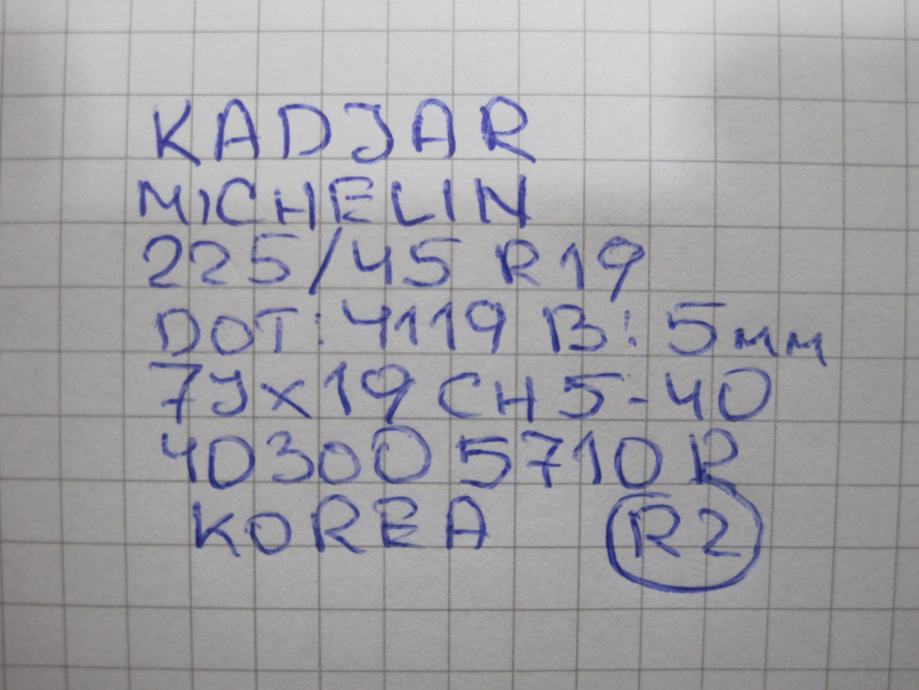 KADJAR
MICHELIN
225/45 R19
DOT: 4119 B: 5мм
7Jx19 CH 5-40
40300 5710 R
KOREA R2